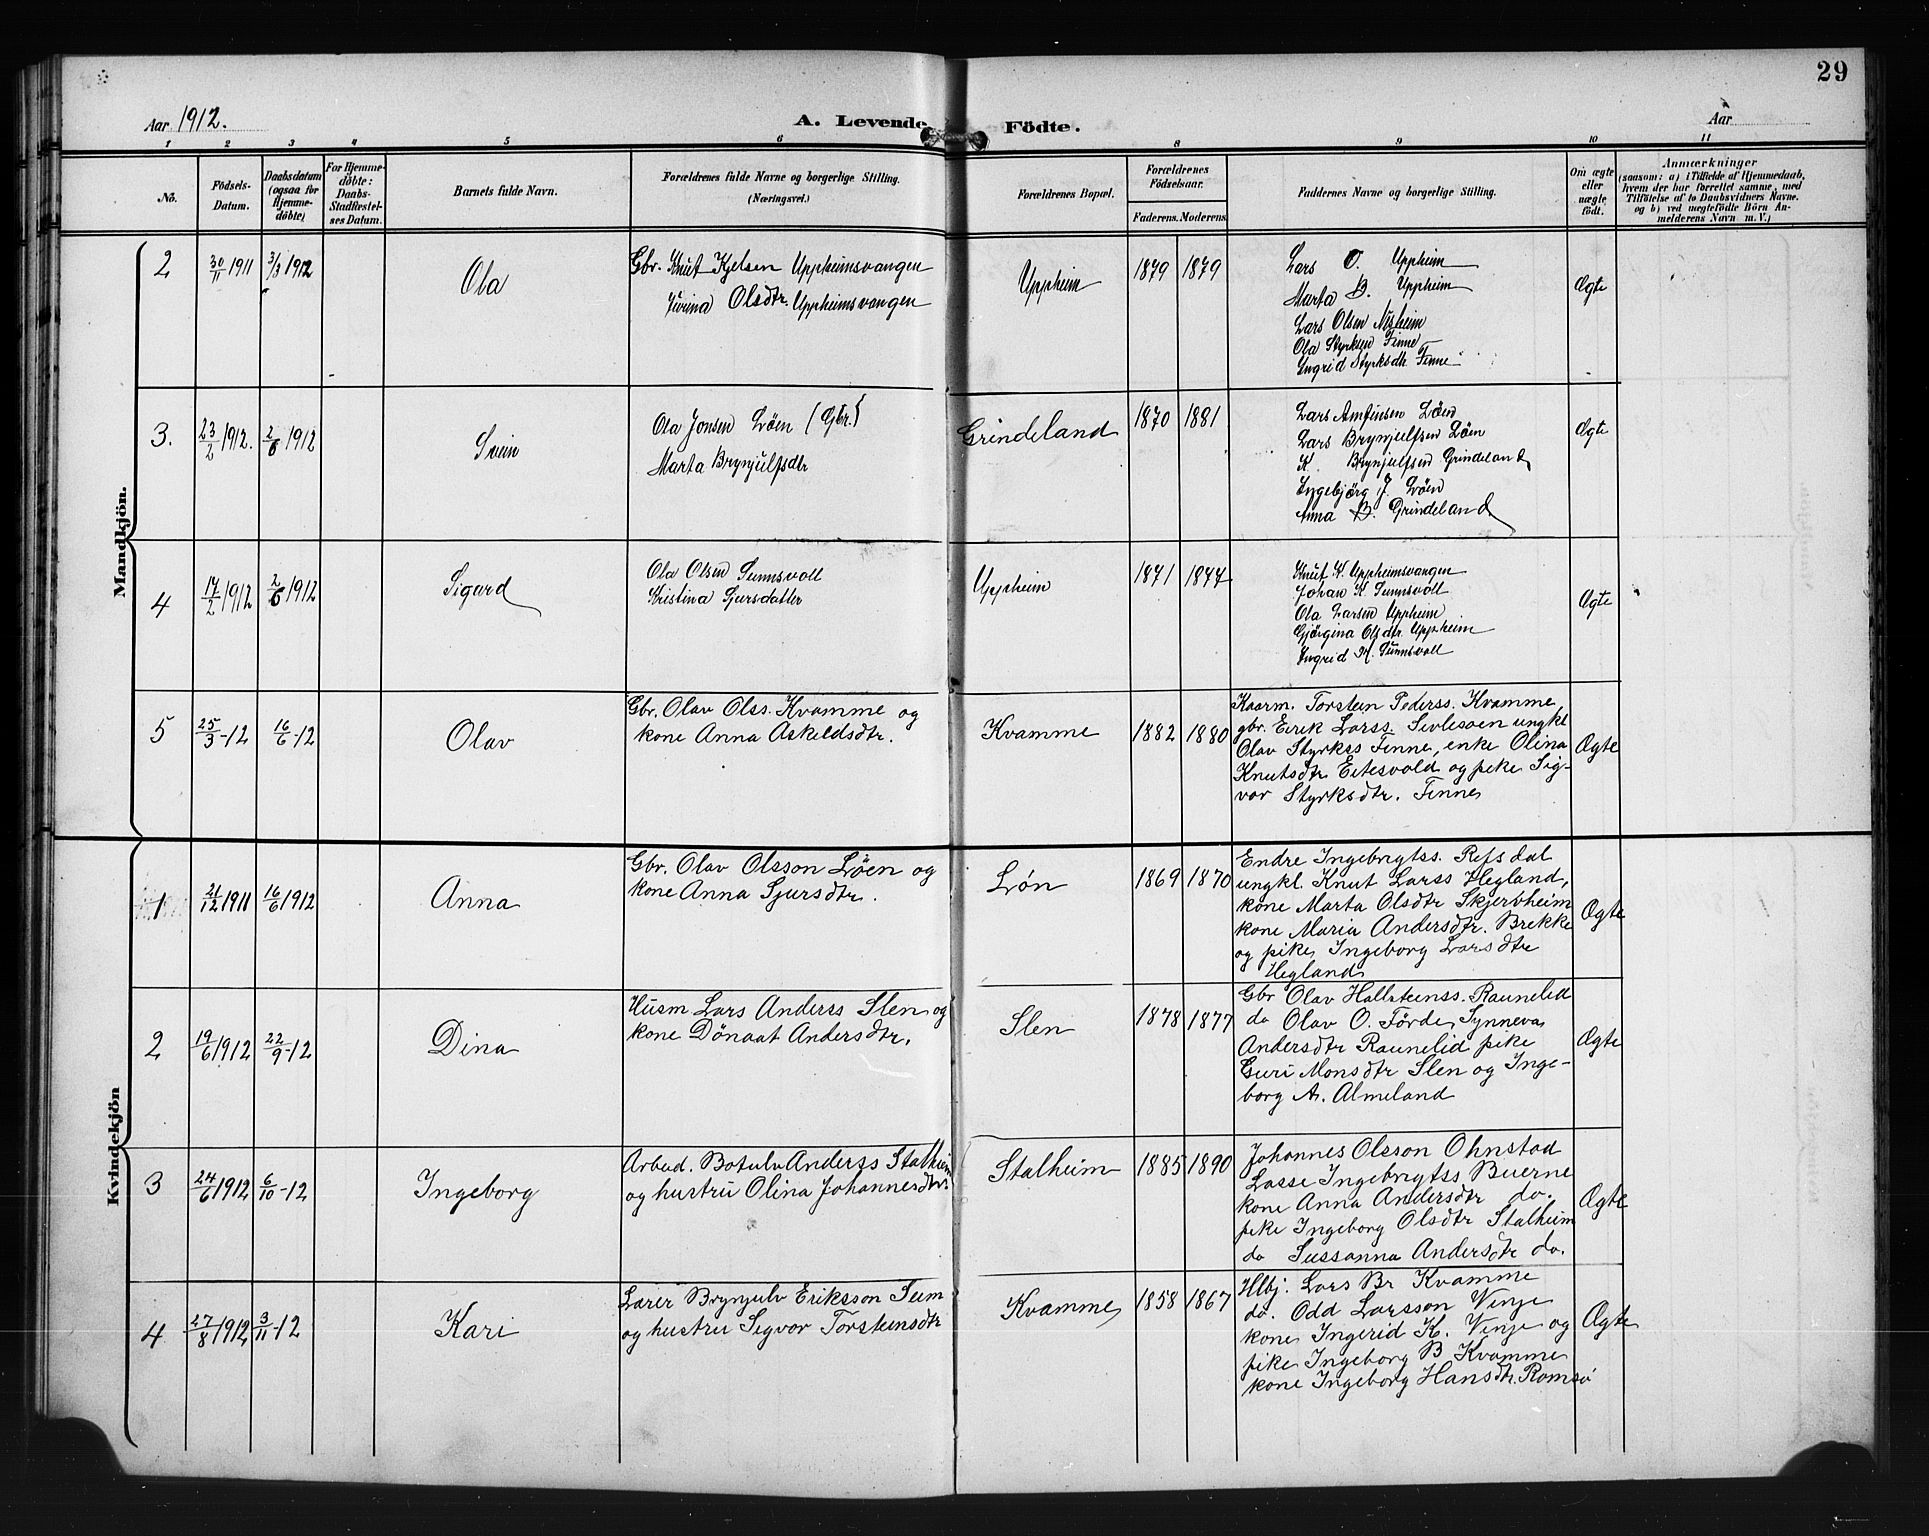 29
Aar 1912. A. Levende Födte. Aar
1 2 3 4 5 6 8 9 10 11
No.
Födsels-Datum.
Daabsdatum (ogsaa for Hjemmedöbte)
For Hjemmedöbte: Daabs-Stadfæstelses Datum.
Barnets fulde Navn.
Forældrenes fulde Navne og borgerlige Stilling. (Næringsvei.)
Forældrenes Bopæl.
Forældrenes Födselsaar. Faderens. Moderens.
Faddernes Navne og borgerlige Stilling.
Om ægte eller uægte födt.
Anmærkninger
(saasom: a) i Tilfælde af Hjemmedaab,
hvem der har forrettet samme, med
Tilföielse af to Daabsvidners Navne.
og b) ved uægtefödte Börn Anmelderens Navn m. V.)
Mandkjön.
2 30/11 1911 3/3 1912 Ola
Gbr. Knut Kjelsen Uppheimsvangen
Jorina Olsdtr. Uppheimsvangen
Uppheim 1879 1879
Lars O. Uppheim
Marta B. Uppheim
Lars Olsen Nisheim
Ola Styrksen Finne
Ingrid Styrksdtr Finne
Ægte
3. 23/2 1912. 2/6 1912 Svein
Ola Jonsen Löen (Gbr.)
Marta Brynjulfsdtr
Grindeland 1870 1881
Lars Amfinsen Löen
Lars Brynjulfsen Löen
K. Brynjulfsen Grindeland
Ingebjörg J. Löen
Anna B. Grindeland
Ægte
4 17/2 1912 2/6 1912 Sigurd
Ola Olsen Sunnsvoll
Kristina Sjursdatter
Uppheim 1871 1877
Knut K. Uppheimsvangen
Johan K Sunnsvoll
Ola Larsen Uppheim
Gjörgina Olsdtr. Uppheim
Ingrid M. Sunnsvoll
Ægte
5 25/3-12 16/6-12 Olav
Gbr. Olav Olss. Kvamme og
kone Anna Askeldsdtr.
Kvamme 1882 1880
Kaarm. Torstein Pederss. Kvamme,
gbr. Eirik Larss. Sivlesøen ungkl
Olav Styrkss Finne, enke Olina
Knutsdtr Eitesvold og pike Sig-
vor Styrksdtr. Finne
Ægte
Kvindekjön
1 21/12 1911 16/6 1912 Anna
Gbr. Olav Olsson Löen og
kone Anna Sjursdtr.
Lön 1869 1870
Endre Ingebrigtss. Refsdal
ungkl. Knut Larss Hegland,
kone Marta Olsdtr Skjervheim
kone Maria Andersdtr. Brekke
og pike Ingeborg Larsdtr
Hegland
Ægte
2 19/6 1912 22/9-12 Dina
Husm Lars Anderss Slen og
kone Dönaat Andersdtr.
Slen 1878 1877
Gbr Olav Hallsteinss. Raunelid
do Olav O. Förde, Synneva
Andersdtr Raunelid pike
Guri Monsdtr Slen og Inge-
borg A. Almeland
Ægte
3 24/6 1912 6/10-12 Ingeborg
Arbeid. Botulv Anderss Stalheim
og hustru Olina Johannesdtr.
Stalheim 1885 1890
Johannes Olsson Ohnstad
Lasse Ingebrigtss Buerne
kone Anna Andersdtr do.
pike Ingeborg Olsdtr Stalheim
do Sussanna Andersdtr do.
Ægte
4 27/8 1912 3/11-12 Kari
Lærer Brynjulv Eriksson Seim
og hustru Sigvor Torsteinsdtr
Kvamme 1858 1867
Hlbj. Lars Br Kvamme
do. Odd Larsson Vinje
kone Ingerid K. Vinje og
pike Ingeborg B Kvamme
kone Ingeborg Hansdtr. Romsö
Ægte